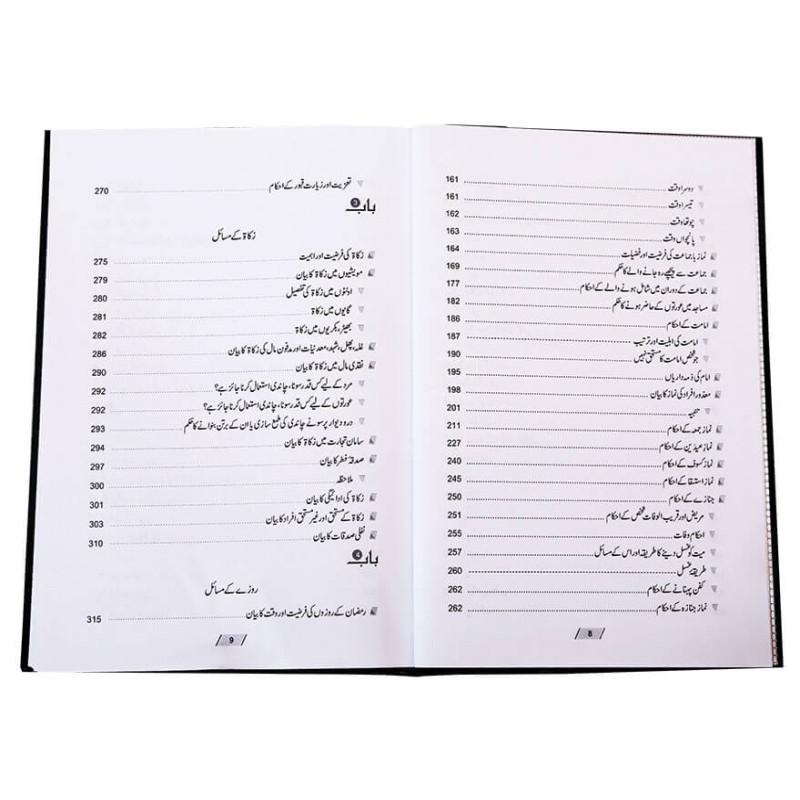 دوسرا وقت 161
تیسرا وقت 161
چوتھا وقت 162
پانچواں وقت 163
نماز باجماعت کی فرضیت اور فضیلت 164
جماعت سے پیچھے رہ جانے والے کا حکم 169
جماعت کے دوران میں شامل ہونے والے کے احکام 177
مساجد میں عورتوں کے حاضر ہونے کا حکم 182
امامت کے احکام 186
امامت کی اہلیت اور ترتیب 187
جو شخص امامت کا مستحق نہیں 190
امام کی ذمہ داریاں 195
معذور افراد کی نماز کا بیان 198
تنبیہ 201
نماز جمعہ کے احکام 211
نماز عیدین کے احکام 227
نماز کسوف کے احکام 240
نماز استسقا کے احکام 245
جنازے کے احکام 250
مریض اور قریب الوفات شخص کے احکام 251
احکام وفات 255
میت کو غسل دینے کا طریقہ اور اس کے مسائل 257
طریقۂ غسل 260
کفن پہنانے کے احکام 262
نماز جنازہ کے احکام 262
8
تعزیت اور زیارت قبور کے احکام 270
باب 3
زکاۃ کے مسائل
زکاۃ کی فرضیت اور اہمیت 275
مویشیوں میں زکاۃ کا بیان 279
اونٹوں میں زکاۃ کی تفصیل 280
گایوں میں زکاۃ 281
بھیڑ، بکریوں میں زکاۃ 282
غلہ، پھل، شہد، معدنیات اور مدفون مال کی زکاۃ کا بیان 286
نقدی مال میں زکاۃ کا بیان 290
مرد کے لیے کس قدر سونا، چاندی استعمال کرنا جائز ہے؟ 292
عورتوں کے لیے کس قدر سونا، چاندی استعمال کرنا جائز ہے؟ 292
در و دیوار پر سونے چاندی کی ملمع سازی یا ان کے برتن بنوانے کا حکم 293
سامان تجارت میں زکاۃ کا بیان 294
صدقۂ فطر کا بیان 297
ملاحظہ 300
زکاۃ کی ادائیگی کا بیان 301
زکاۃ کے مستحق اور غیر مستحق افراد کا بیان 303
نفلی صدقات کا بیان 310
باب 4
روزے کے مسائل
رمضان کے روزوں کی فرضیت اور وقت کا بیان 315
9